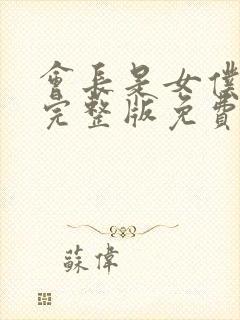 會長是女僕
完整版免費
蘇偉